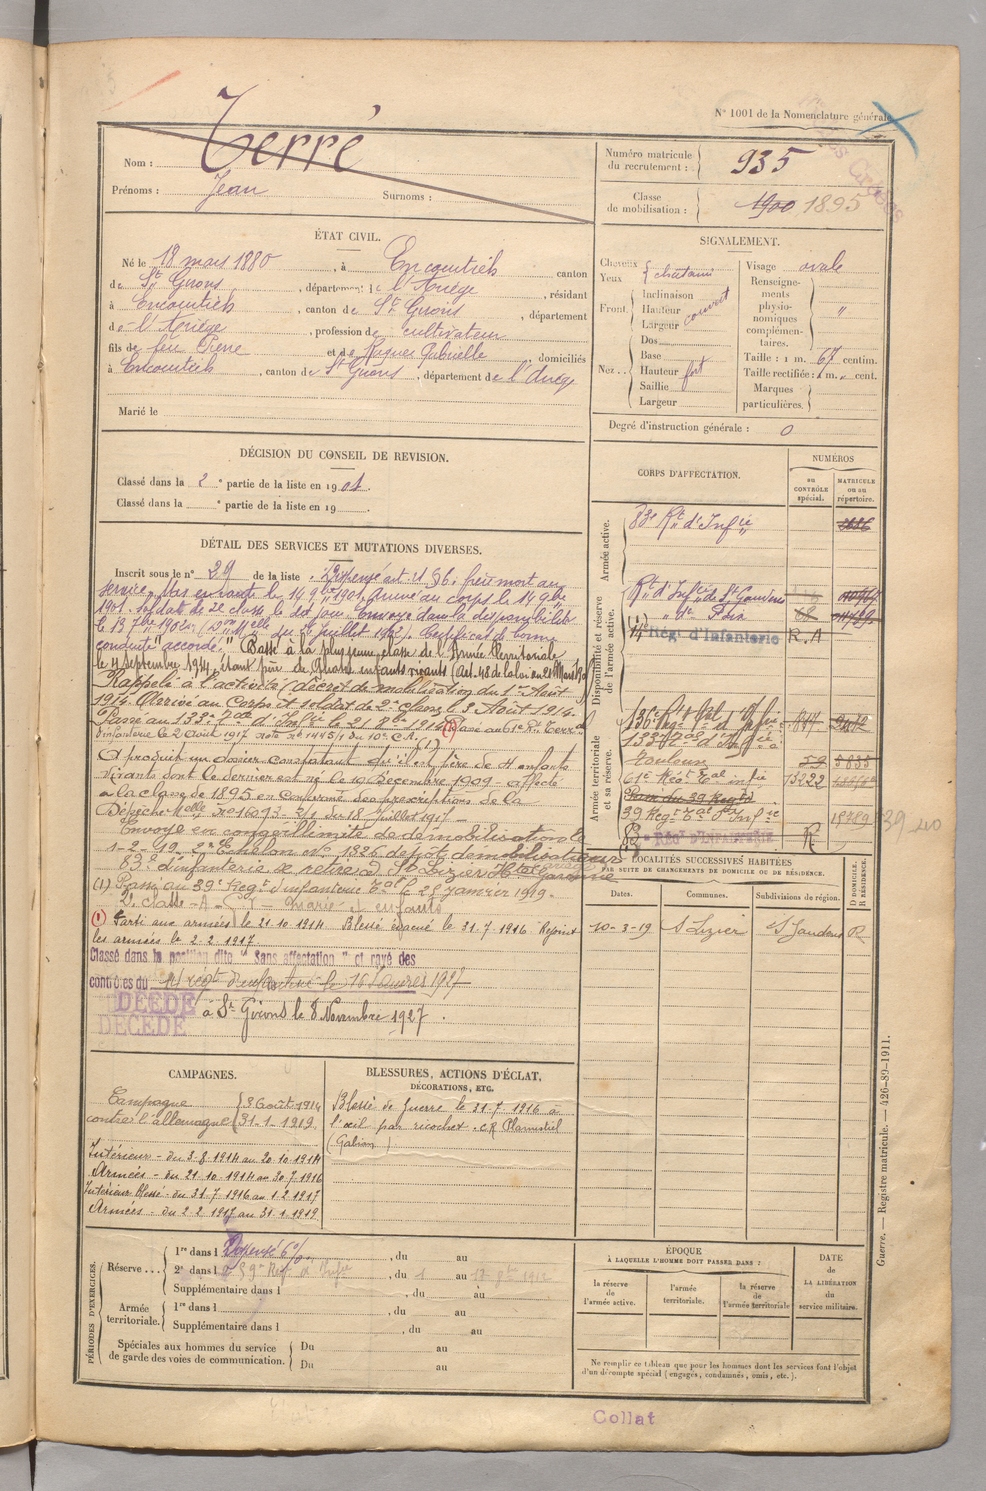 N° 1001 de la Nomenclature générale
Nom : Terré
Prénoms : Jean Surnoms :
Numéro matricule du recrutement : 935
Classe de mobilisation : 1900 1895
ÉTAT CIVIL.
Né le 18 mars 1880, à Encourtiech canton
de St Girons, département de l'Ariège, résidant
à Encourtiech, canton de St Girons, département
de l'Ariège, profession de cultivateur
fils de feu Pierre et de Gabrielle domiciliés
à Encourtiech, canton de St Girons, département de l'Ariège
Marié le
SIGNALEMENT.
Cheveux
Yeux châtains
Front Inclinaison
Hauteur
Largeur couvert
Nez Dos
Base
Hauteur fort
Saillie
Largeur
Visage ovale
Renseignements physionomiques complémentaires. "
Taille : 1 m. 67 centim.
Taille rectifiée : 1 m. " cent.
Marques particulières
Degré d'instruction générale : 0
DÉCISION DU CONSEIL DE REVISION.
Classé dans la 2e partie de la liste en 1901.
Classé dans la e partie de la liste en 19
CORPS D'AFFECTATION.
NUMÉROS
au CONTRÔLE spécial.
MATRICULE ou au répertoire.
Armée active.
83e Rt d'Infie
Disponibilité et réserve de l'armée active.
Rt d'Infie de St Gaudens
dt Foix
14e Rég. d'Infanterie R.A
Armée territoriale et sa réserve.
136e Regt Tal d'Infie 847
133e Tal d'Infie
Toulouse 59 5838
61e Régt Tal infie 13222
39 Regt Tal d'Infie 18789
RÉGt D'INFANTERIE R
DÉTAIL DES SERVICES ET MUTATIONS DIVERSES.
Inscrit sous le n° 29 de la liste Dispensé art. 21 § 6. frère mort au
service. Mis en route le 14 9bre 1901. Arrivé au corps le 14 9bre
1901. soldat de 2e classe le dit jour. Envoyé dans la disponibilité
le 13 7bre 1902 juillet 1902). Certificat de bonne
conduite "accordé". Passé à la plus jeune classe de l'Armée Territoriale
le 4 septembre 1914, étant père de enfants vivants (Art. 48 de la loi du 21 Mars 1905)
Rappelé à l'activité, décret de mobilisation du 1er Août
1914. Arrivé au Corps et soldat de 2e classe le 3 Août 1914.
Passé au 133e Tal d'Infie le 21 1914 (1) Passé au 61e Rt Terral
d'infanterie le 2 Août 1917 note no 1445/1 du 10e C.A.
A produit un dossier constatant qu'il est père de 4 enfants
vivants dont le dernier est né le 10 décembre 1909 - affecté
à la classe de 1895 en conformité des prescriptions de la
Dépêche Mlle no 16093-2/1 du 18 Juillet 1917
Envoyé en congé illimité de démobilisation le
1-2-19 2e Echelon no 1826 dépôt démobilisateur
83e d'infanterie se retire à St Lizier Hte Garonne
(1) Passé au 39e Regt d'infanterie Tal le 25 janvier 1919.
2e classe - A - marié 4 enfants
(1) Parti aux armées le 21.10.1914 Blessé évacué le 31.7.1916. Rejoint
les armées le 2.2.1917.
Classé dans la position dite "Sans affectation" et rayé des
contrôles du 14e régt d'infanterie le 16 1927
DÉCÉDÉ
DÉCÉDÉ à St Girons le 8 Novembre 1927.
LOCALITÉS SUCCESSIVES HABITÉES
PAR SUITE DE CHANGEMENTS DE DOMICILE OU DE RÉSIDENCE.
Dates. Communes. Subdivisions de région. D DOMICILE. R RÉSIDENCE.
10-3-19 St Lizier St Gaudens R
CAMPAGNES.
Campagne contre l'allemagne { 3 Août 1914
31-1-1919.
Intérieur - du 3.8.1914 au 20.10.1914
Armées - du 21.10.1914 au 30.7.1916
Intérieur Blessé - du 31.7.1916 au 1.2.1917
Armées - du 2.2.1917 au 31.1.1919
BLESSURES, ACTIONS D'ÉCLAT,
DÉCORATIONS, ETC.
Blessé de Guerre le 31.7.1916 à
l'œil par ricochet
PÉRIODES D'EXERCICES.
Réserve 1re dans l Dispensé 6% , du au
2e dans l 59e Reg. d'Infie, du 1 au 17 1912
Supplémentaire dans l , du au
Armée territoriale. 1re dans l , du au
Supplémentaire dans l , du au
Spéciales aux hommes du service de garde des voies de communication. Du au
Du au
ÉPOQUE
À LAQUELLE L'HOMME DOIT PASSER DANS :
la réserve de l'armée active.
l'armée territoriale.
la réserve de l'armée territoriale
DATE de LA LIBÉRATION du service militaire.
Ne remplir ce tableau que pour les hommes dont les services font l'objet
d'un décompte spécial (engagés, condamnés, omis, etc.).
Guerre. — Registre matricule. — 426-89-1911.
Collat